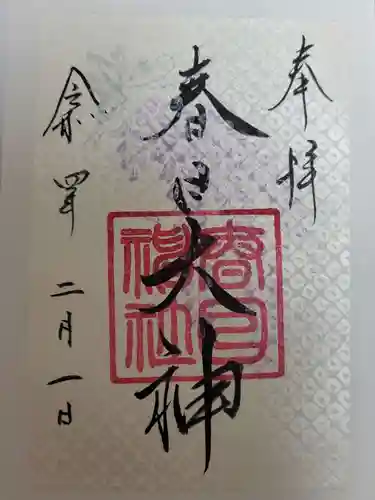 奉拝
春日大神
春日
神社
令和四年
二月一日